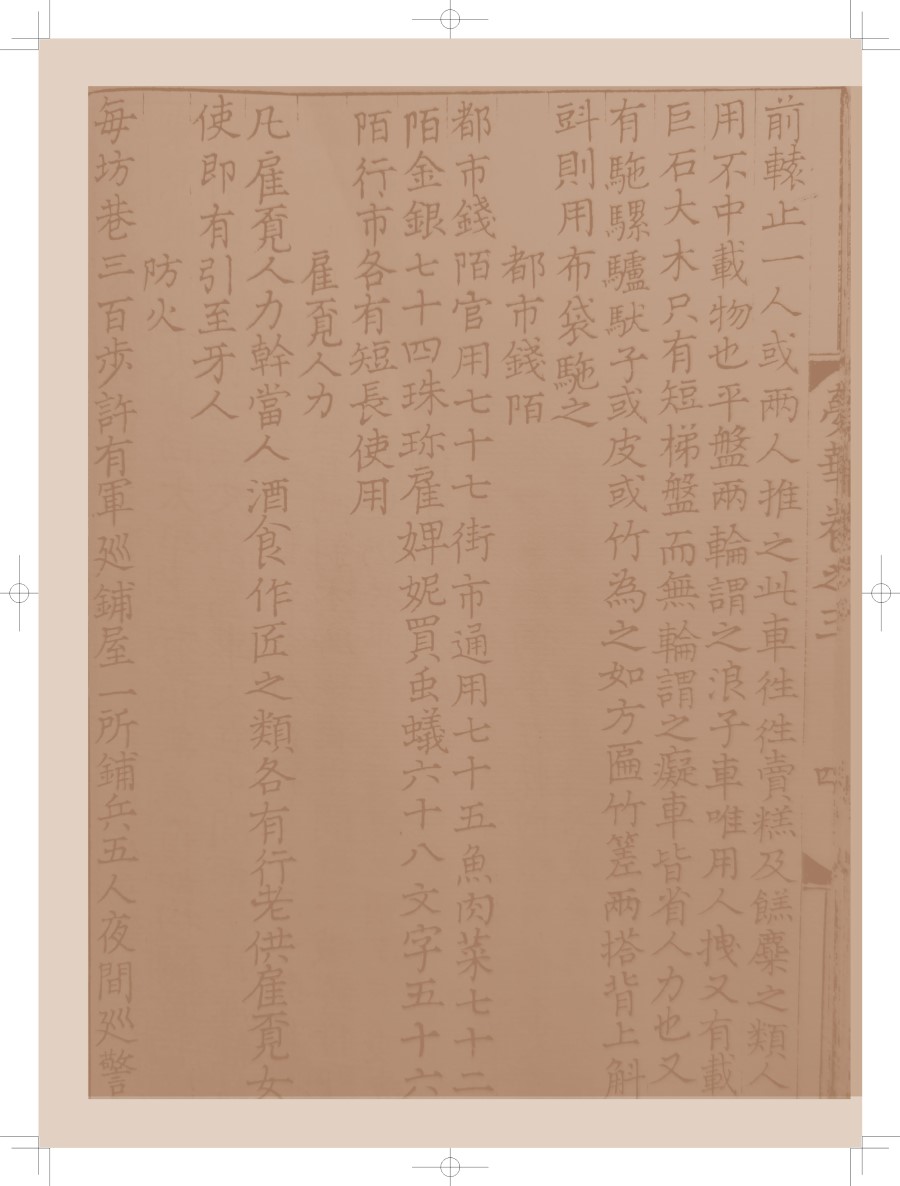 夢華卷之三
四
前轅止一人或兩人推之此車徃徃賣糕及餻麋之類人
用不中載物也平盤兩輪謂之浪子車唯用人拽又有載
巨石大木只有短梯盤而無輪謂之癡車皆省人力也又
有駞騾驢馱子或皮或竹為之如方匾竹䇟兩搭背上斛
㪷則用布袋駞之
都市錢陌
都市錢陌官用七十七街市通用七十五魚肉菜七十二
陌金銀七十四珠珎雇婢妮買虫蟻六十八文字五十六
陌行市各有短長使用
雇覔人力
凡雇覔人力幹當人酒食作匠之類各有行老供雇覔女
使即有引至牙人
防火
每坊巷三百步許有軍廵鋪屋一所鋪兵五人夜間廵警